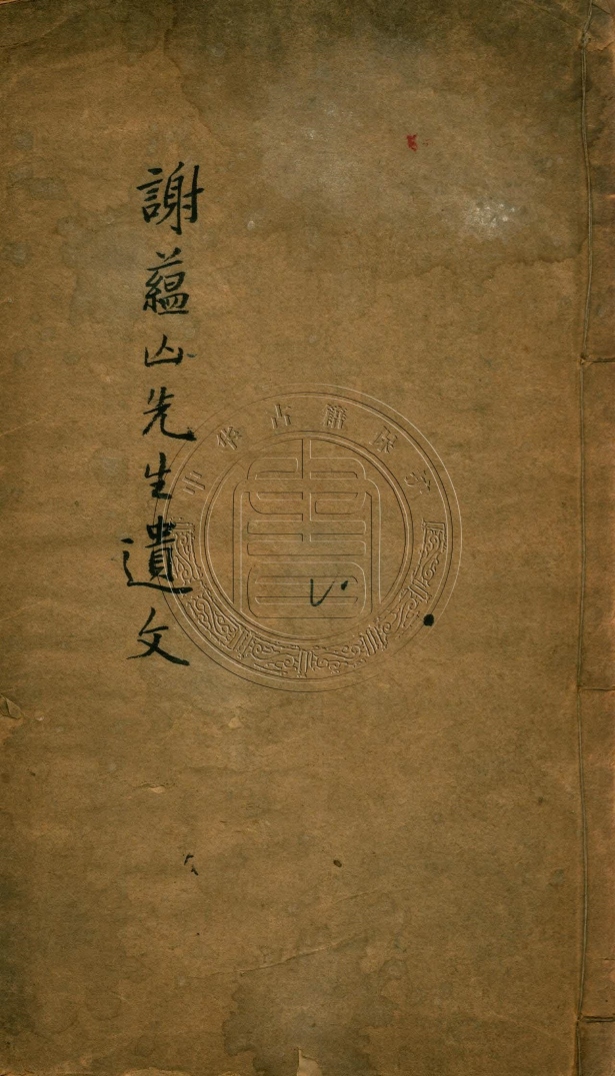 謝蘊山先生遺文